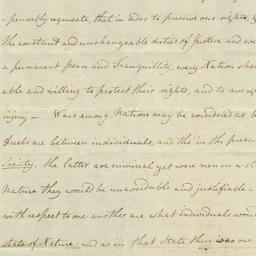 -pensably requisite, that in order to preserve our rights, &
the constant and unchangeable duties of Justice and
a permanent peace and Tranquillity, every Nation shou
able and willing to protect their rights, and to aveng
injury — Wars among Nations may be considered as
Duels are between individuals, and tho' in the presen
Society. the latter are criminal yet were men in a st
Nature they would be unavoidable and justifiable —
with respect to one another are what individuals woul
state of Nature and as in that State there was one